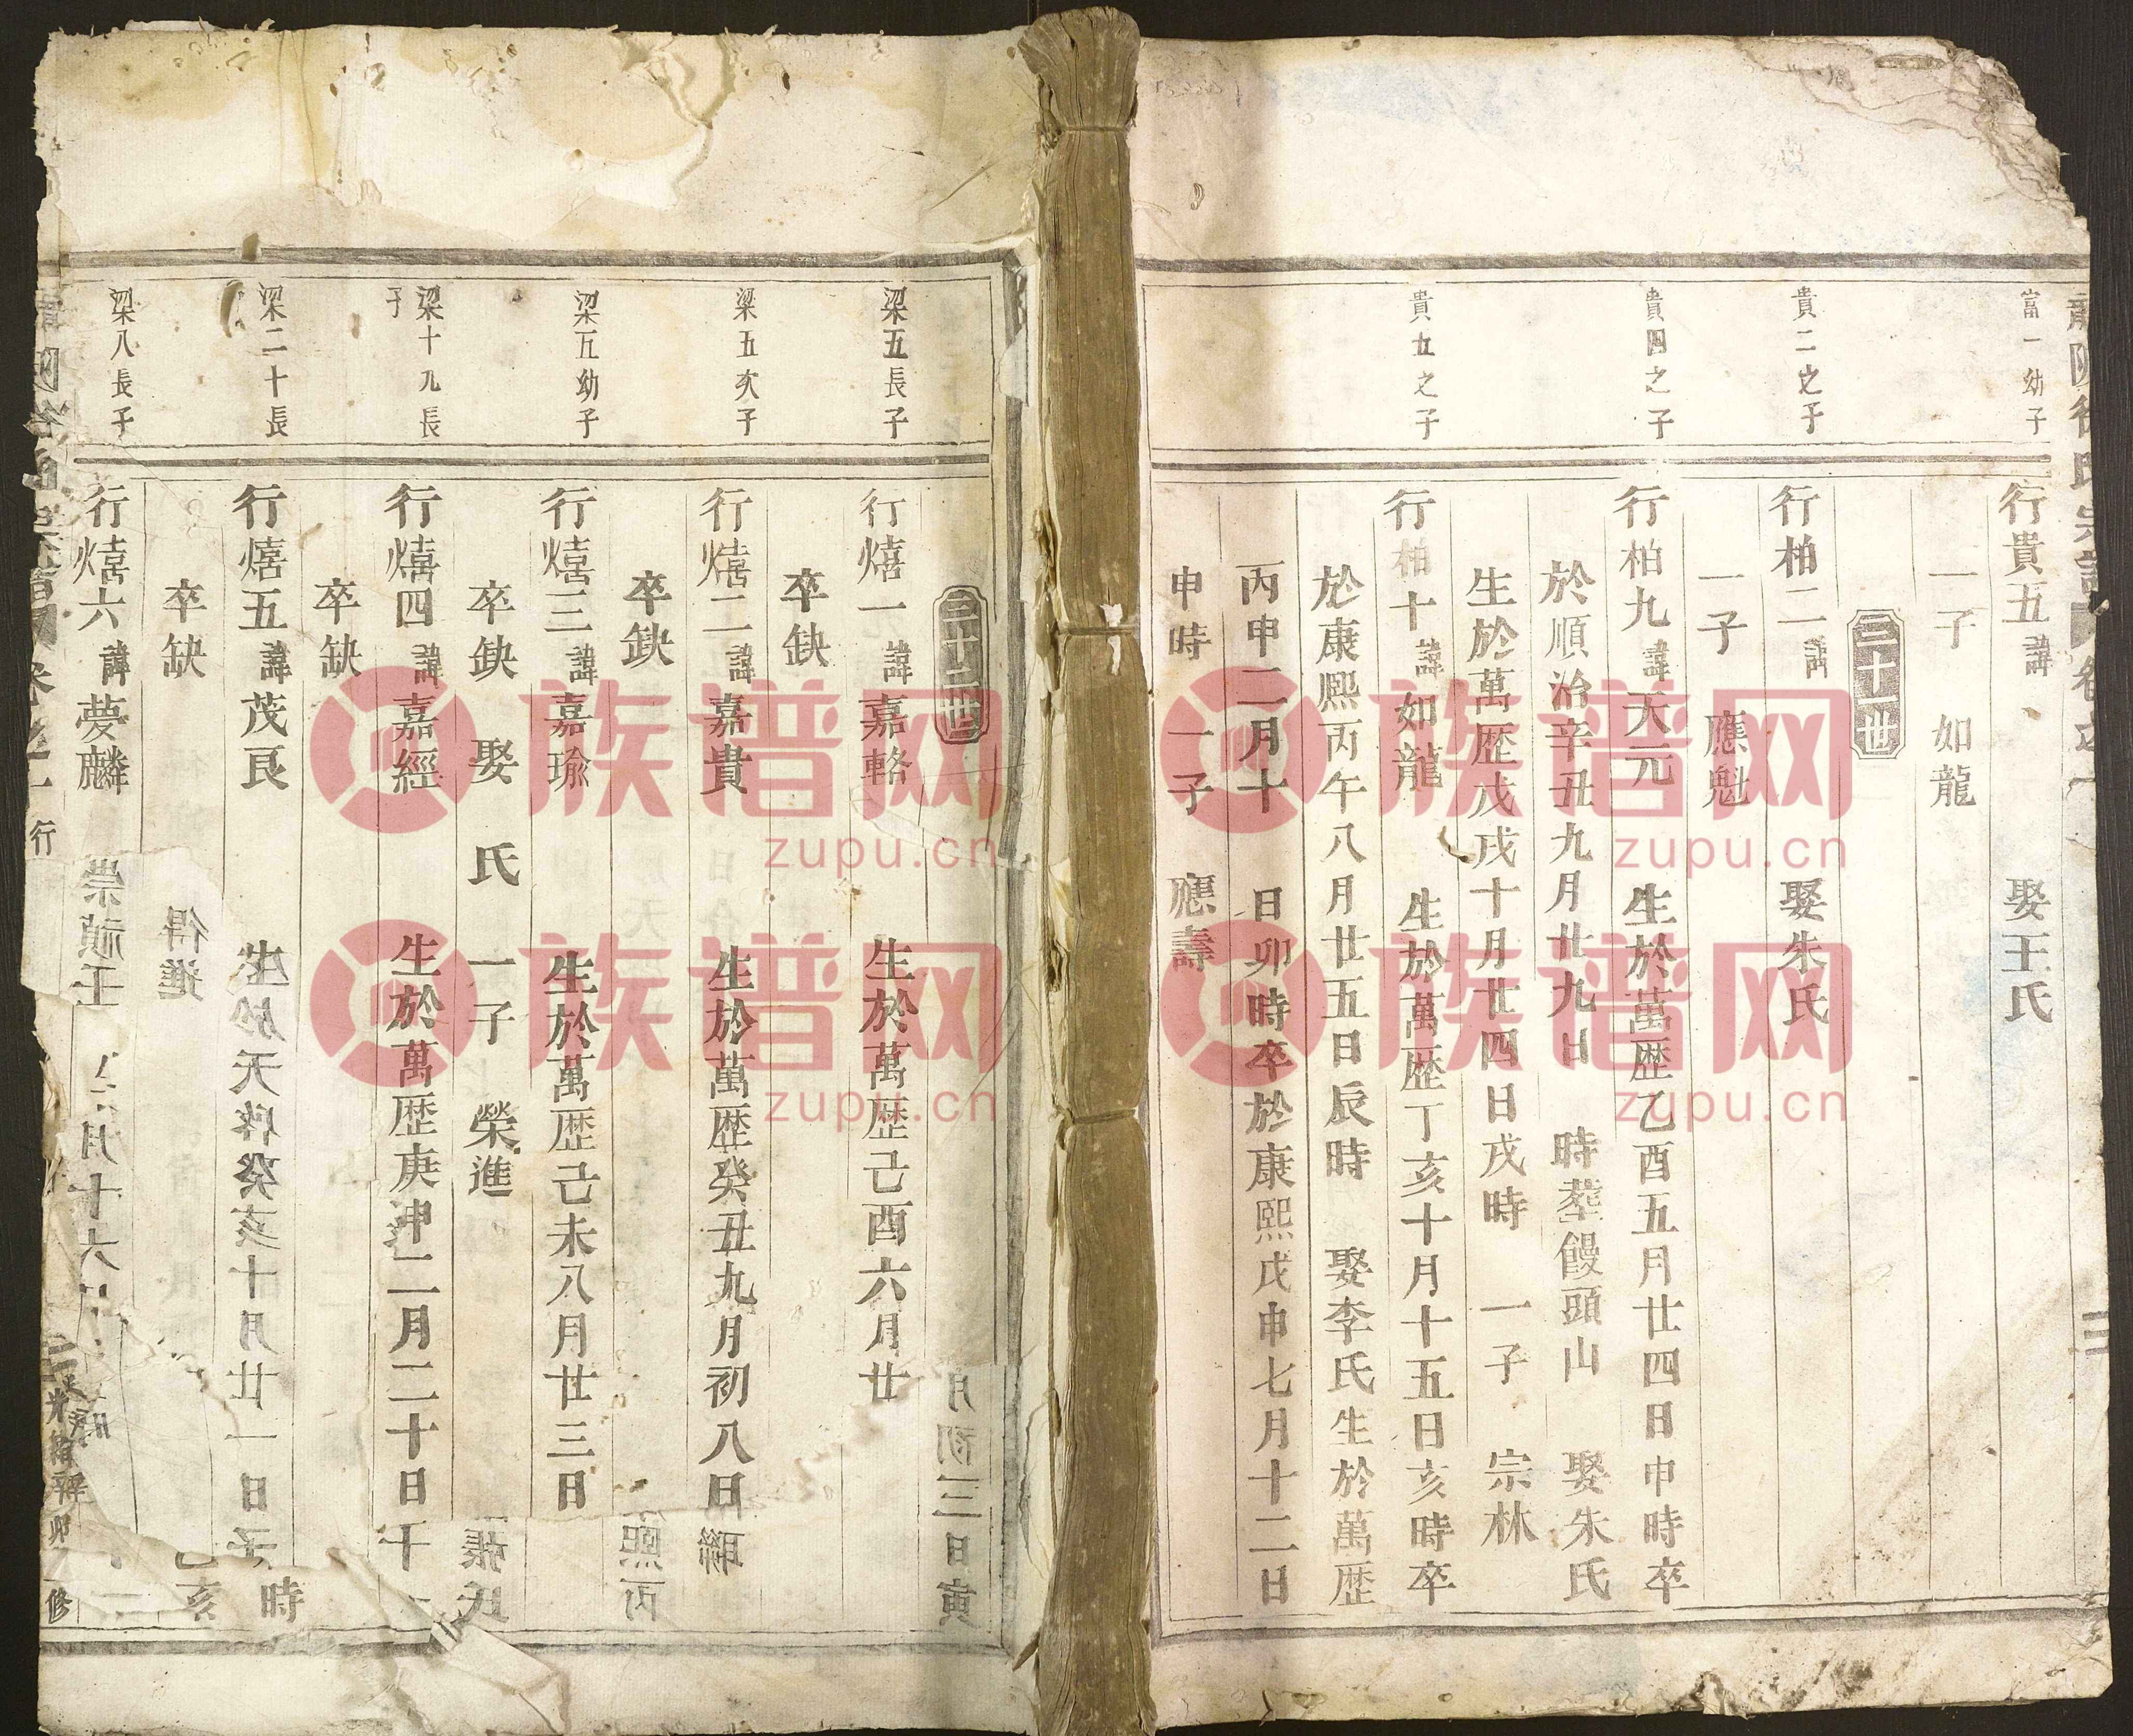 富一幼子
行貴五諱
娶王氏
一子 如龍
三十世
貴二之子
行柏二諱
娶朱氏
一子 應魁
貴四之子
行柏九諱天元 生於萬歷乙酉五月廿四日申時卒
於順治辛丑九月廿九日 時塟饅頭山 娶朱氏
生於萬歷戊戌十月廿四日戌時 一子 宗林
貴五之子
行柏十諱如龍 生於萬歷丁亥十月十五日亥時卒
於康熙丙午八月廿五日辰時 娶李氏生於萬歷
丙申二月十 日卯時卒於康熙戊申七月十二日
申時 一子 應壽
月初三日寅
梁五長子
行熺一諱嘉輅 生於萬歷己酉六月廿
卒缺
梁五次子
行熺二諱嘉貴 生於萬歷癸丑九月初八日
卒缺
熙丙
梁五幼子
行熺三諱嘉瑜 生於萬歷己未八月廿三日
卒缺 娶 氏 一子 榮進
張氏
梁十九長子
行熺四諱嘉經 生於萬歷庚申二月二十日
卒缺
梁二十長
行熺五諱茂良
生於天啟癸亥十月廿一日子時
卒缺
得進
亥
梁八長子
行熺六諱夢麟
崇禎壬
月十六
族谱网
zupu.cn
族谱网
zupu.cn
族谱网
zupu.cn
族谱网
zupu.cn